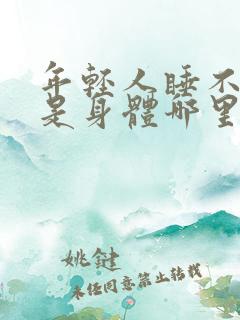 年轻人睡不
是身體哪里
姚鍵
未任同意禁止转载